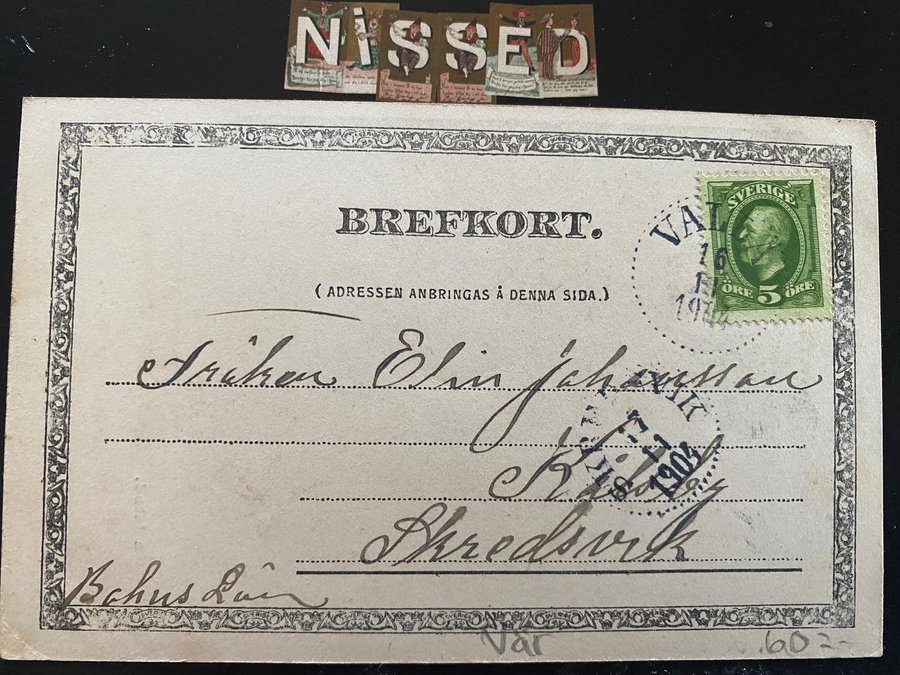 NISSED
BREFKORT.
(ADRESSEN ANBRINGAS Å DENNA SIDA.)
SVERIGE
ÖRE 5 ÖRE
VAL
16
1904
Fröken Elin Johansson
17
1904
Skredsvik
Bohus Län
Vår
602-